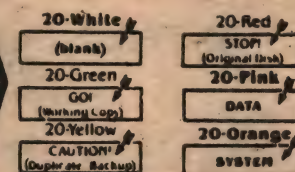 20-White
(blank)
20-Green
GO!
(Working Copy)
20-Yellow
CAUTION!
(Duplicate Backup)
20-Red
STOP!
(Original Disk)
20-Pink
DATA
20-Orange
SYSTEM